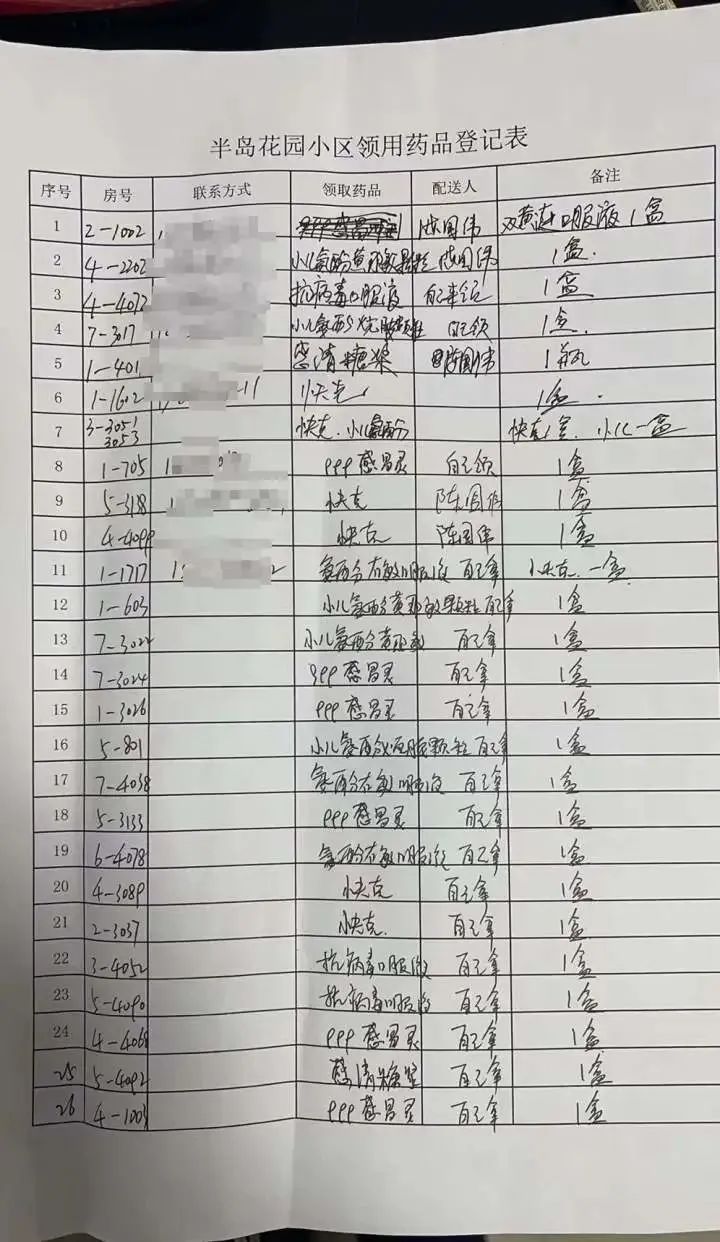 半岛花园小区领用药品登记表
序号 房号 联系方式 领取药品 配送人 备注
1 2-1002 陈国伟 双黄连口服液 1盒
2 4-2202 小儿氨酚黄那敏颗粒 陈国伟 1盒
3 4-4072 抗病毒口服液 自己来领 1盒
4 7-3017 自己领 1盒
5 1-401 感清糖浆 陈国伟 1瓶
6 1-1602 快克 1盒
7 3-3051 3053 快克、小儿氨酚 快克1盒、小儿一盒
8 1-705 999感冒灵 自己领 1盒
9 5-318 快克 陈国伟 1盒
10 4-4099 快克 陈国伟 1盒
11 1-1717 氨酚 口服液 自己拿 小快克 一盒
12 1-603 小儿氨酚黄那敏颗粒 自己拿 1盒
13 7-3022 小儿氨酚黄那敏 自己拿 1盒
14 7-3024 999感冒灵 自己拿 1盒
15 1-3026 999感冒灵 自己拿 1盒
16 5-801 小儿氨酚 颗粒 自己拿 1盒
17 7-4038 口服液 自己拿 1盒
18 5-3133 999感冒灵 自己拿 1盒
19 6-4078 口服液 自己拿 1盒
20 4-3089 快克 自己拿 1盒
21 2-3037 快克 自己拿 1盒
22 3-4052 抗病毒口服液 自己拿 1盒
23 5-4090 抗病毒口服液 自己拿 1盒
24 4-4068 999感冒灵 自己拿 1盒
25 5-4092 感清糖浆 自己拿 1盒
26 4-1003 999感冒灵 自己拿 1盒